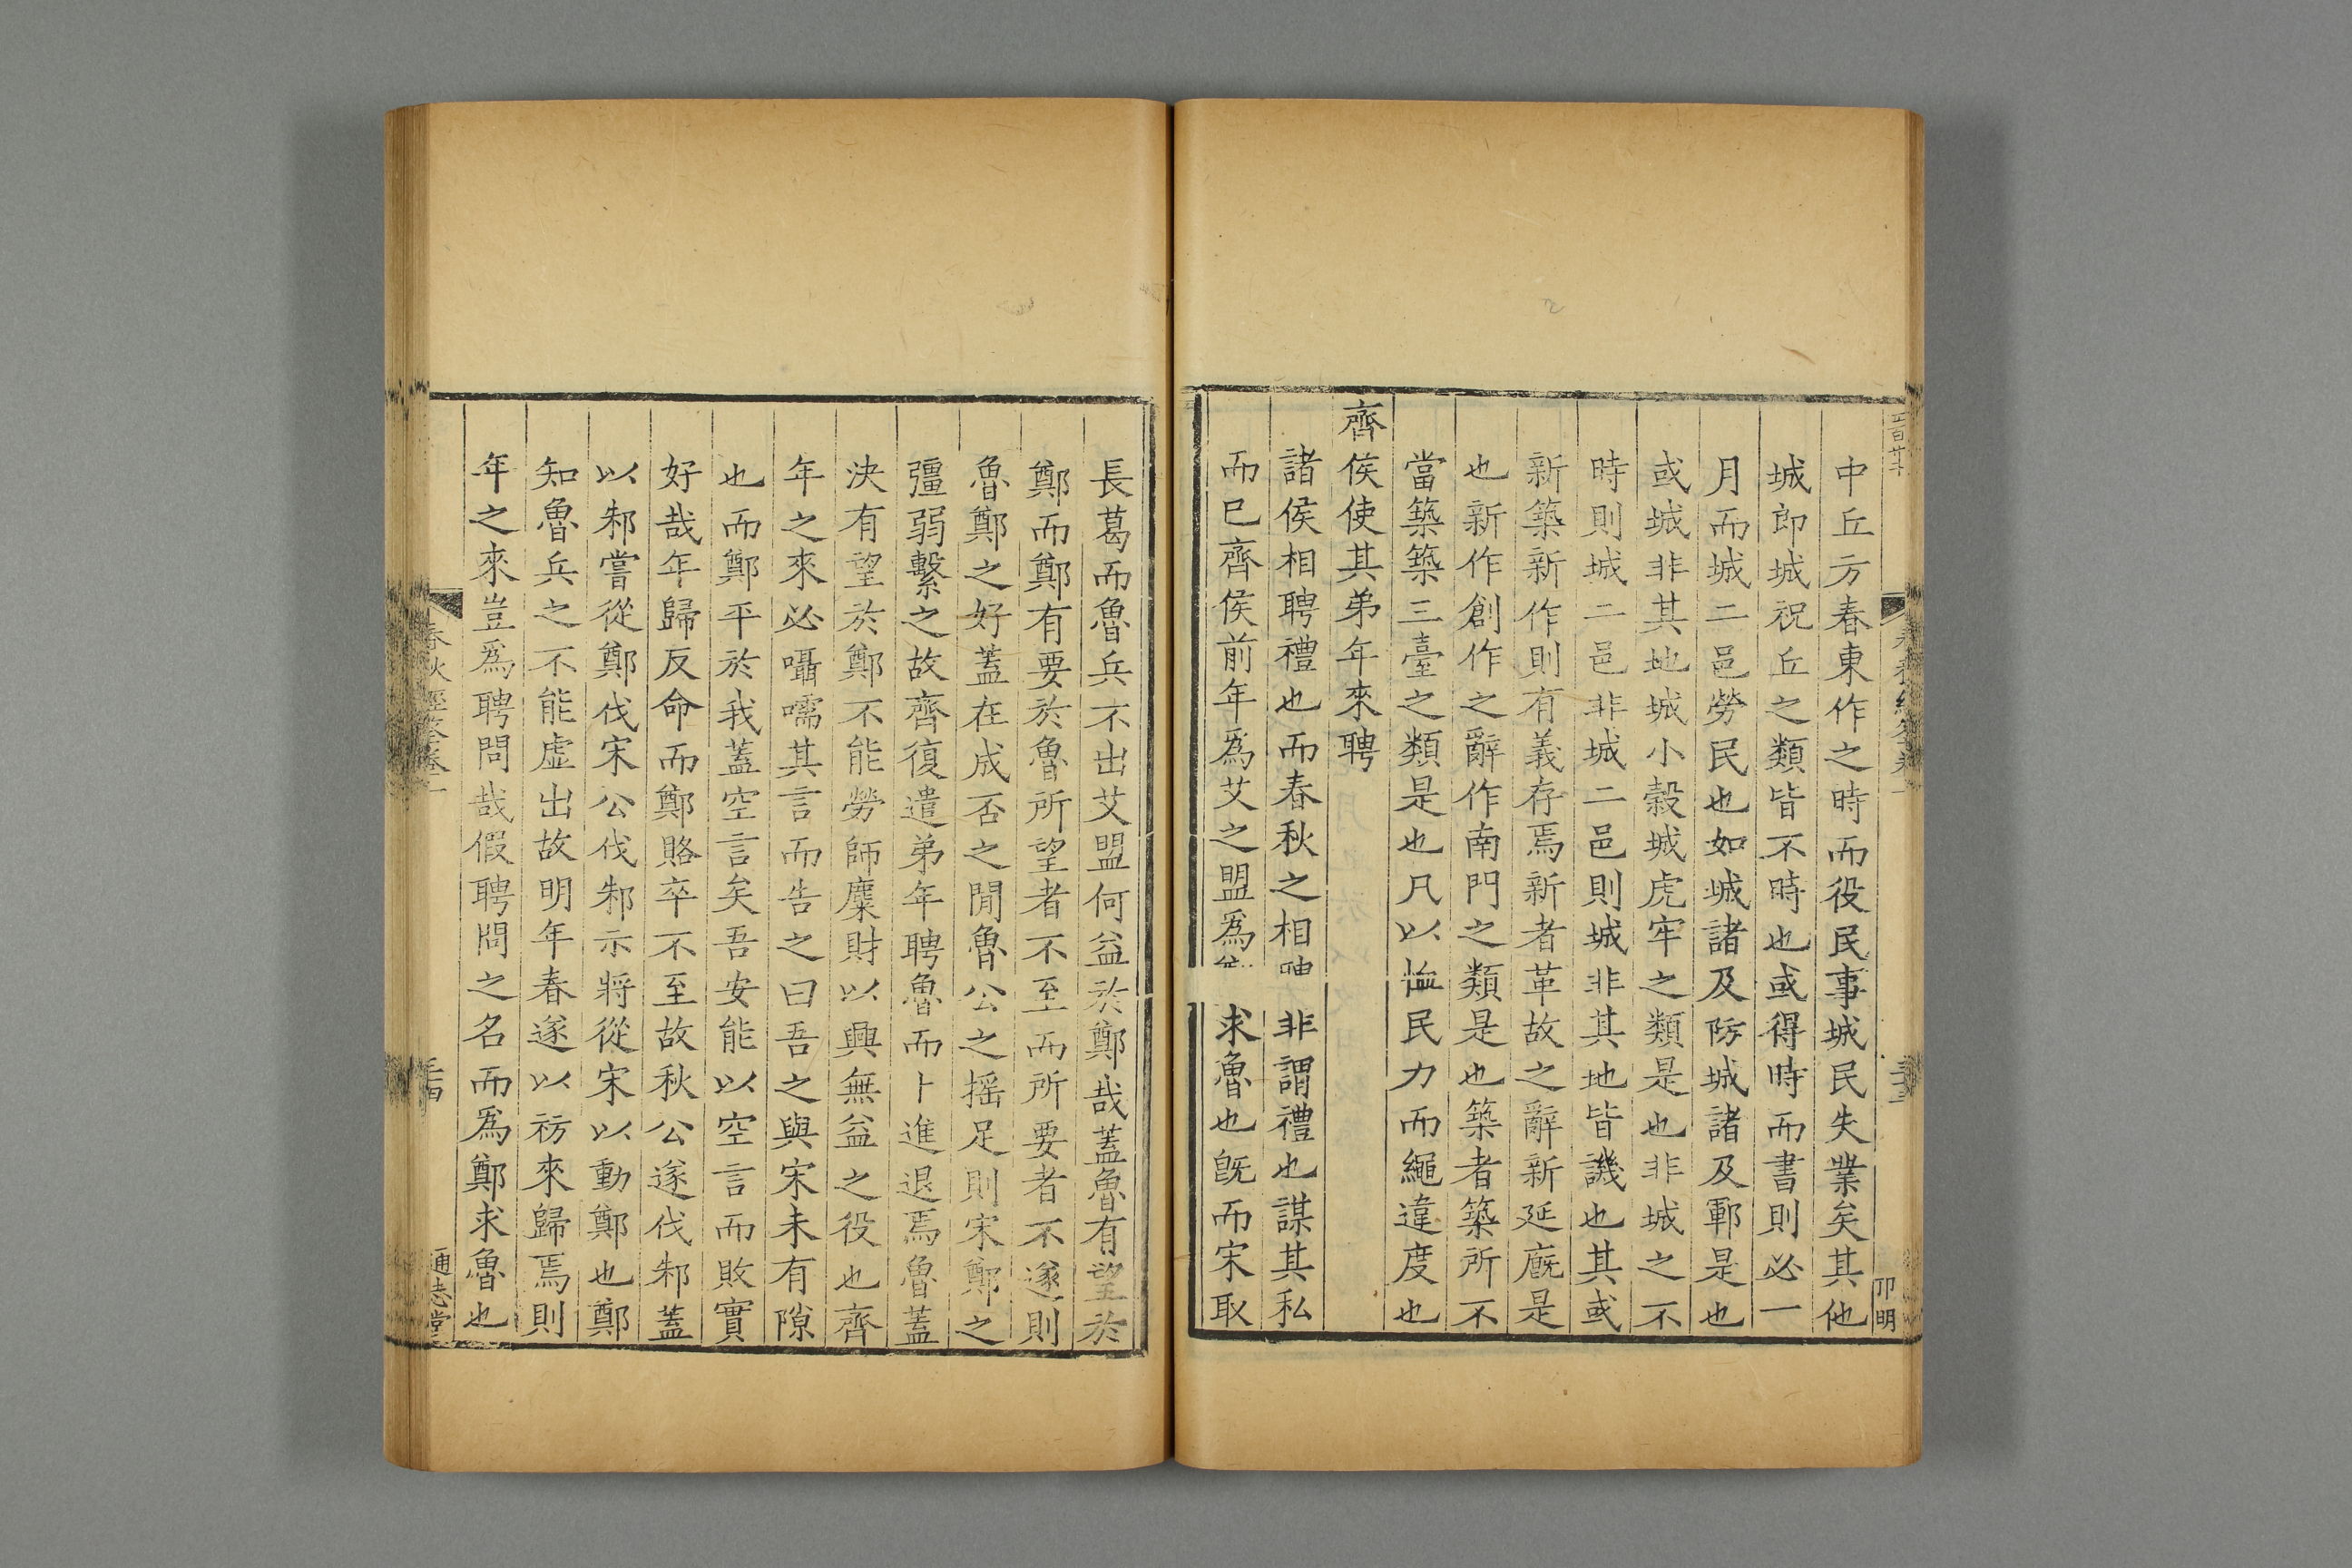 中丘方春東作之時而役民事城民失業矣其他
城郎城祝丘之類皆不時也或得時而書則必一
月而城二邑勞民也如城諸及防城諸及鄆是也
或城非其地城小穀城虎牢之類是也非城之不
時則城二邑非城二邑則城非其地皆譏也其或
新築新作則有義存焉新者革故之辭新延廐是
也新作創作之辭作南門之類是也築者築所不
當築築三臺之類是也凡以恤民力而繩違度也
齊侯使其弟年來聘
諸侯相聘禮也而春秋之相聘非謂禮也謀其私
而已齊侯前年爲艾之盟爲求魯也旣而宋取
長葛而魯兵不出艾盟何益於鄭哉蓋魯有望於
鄭而鄭有要於魯所望者不至而所要者不遂則
魯鄭之好蓋在成否之間魯公之摇足則宋鄭之
彊弱繫之故齊復遣弟年聘魯而卜進退焉魯蓋
決有望於鄭不能勞師糜財以興無益之役也齊
年之來必囁嚅其言而告之曰吾之與宋未有隙
也而鄭平於我蓋空言矣吾安能以空言而敗實
好哉年歸反命而鄭賂卒不至故秋公遂伐邾蓋
以邾嘗從鄭伐宋公伐邾示將從宋以動鄭也鄭
知魯兵之不能虛出故明年春遂以祊來歸焉則
年之來豈爲聘問哉假聘問之名而爲鄭求魯也
春秋經筌卷一
通志堂